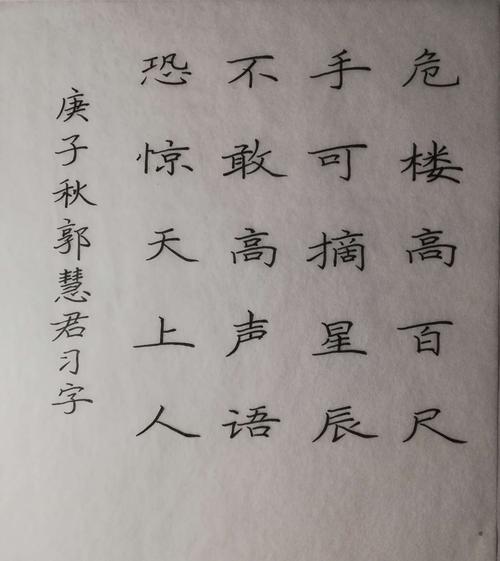 危楼高百尺
手可摘星辰
不敢高声语
恐惊天上人
庚子秋郭慧君习字